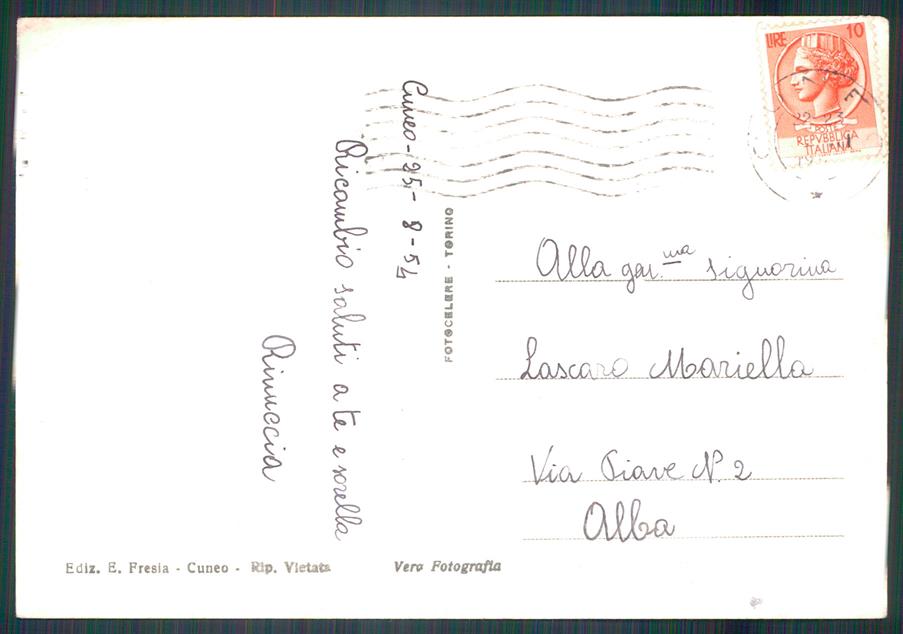 Cuneo - 25 - 8 - 54
Ricambio saluti a te e sorella
Rinuccia
FOTOCELERE - TORINO
LIRE 10
POSTE
REPVBBLICA
ITALIANA
22-23
Alla gen.ma signorina
Lascaro Mariella
Via Piave N. 2
Alba
Ediz. E. Fresia - Cuneo - Rip. Vietata
Vera Fotografia